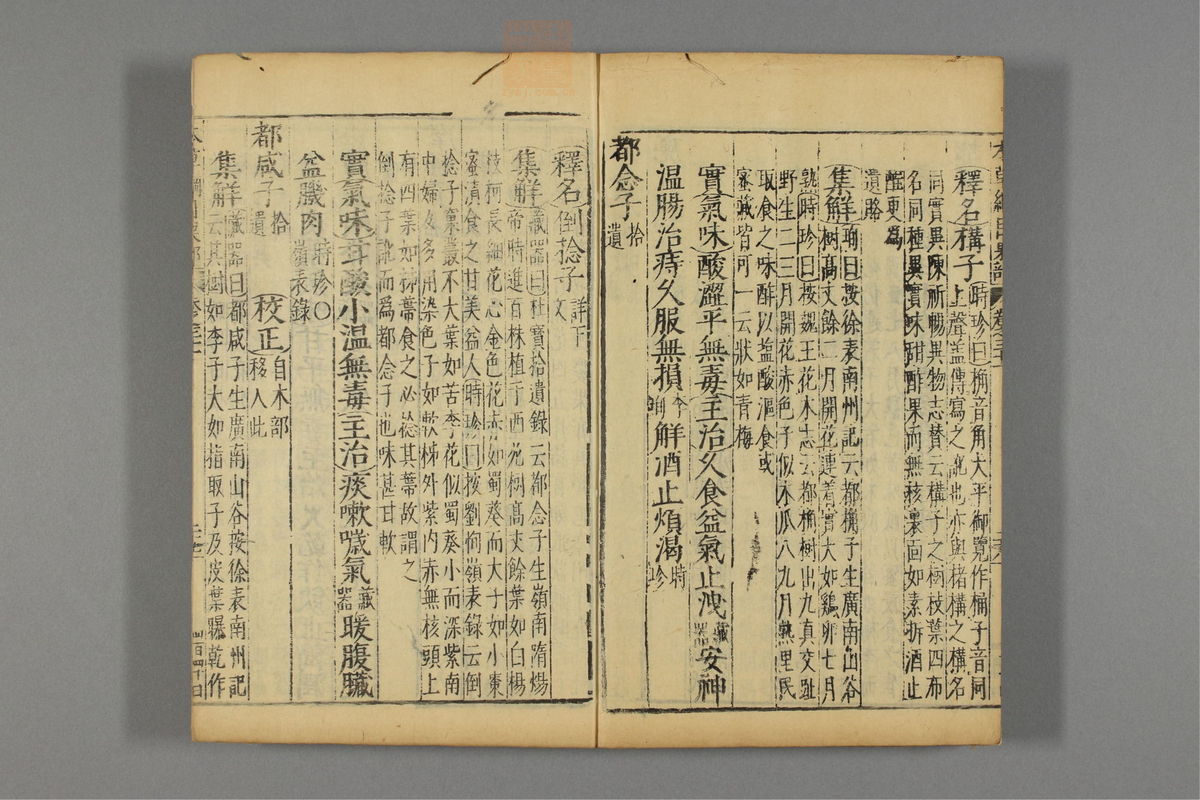 釋名構子時珍曰桷音角太平御覽作桶子音同
上聲盖傳寫之訛也亦與楮構之構名
同實異陳祈暢異物志贊云構子之樹枝葉四布
名同種異實味甜酢果而無核裏面如素拆酒止
酲更爲
遺賂
集解珣曰按徐表南州記云都桷子生廣南山谷
樹高丈餘二月開花連着實大如鷄卵七月
熟時珍曰按魏王花木志云都桷樹出九真交趾
野生二三月開花赤色子似木瓜八九月熟里民
取食之味酢以鹽酸漚食或
蜜藏皆可一云狀如青梅
實氣味酸澀平無毒主治久食益氣止洩藏器安神
温腸治痔久服無損李珣解酒止煩渴時珍
都念子拾遺
釋名倒捻子詳下文
集解藏器曰杜寶拾遺錄云都念子生嶺南隋煬
帝時進百株植于西苑樹高丈餘葉如白楊
枝柯長細花心金色花赤如蜀葵而大子如小棗
蜜漬食之甘美益人時珍曰按劉恂嶺表錄云倒
捻子窠叢不大葉如苦李花似蜀葵小而深紫南
中婦女多用染色子如軟柹外紫内赤無核頭上
有四葉如柹蒂食之必捻其蒂故謂之
倒捻子訛而爲都念子也味甚甘軟
實氣味甘酸小温無毒主治痰嗽噦氣藏器暖腹臟
益肌肉時珍○嶺表錄
都咸子拾遺 校正自木部移入此
集解藏器曰都咸子生廣南山谷按徐表南州記
云其樹如李子大如指取子及皮葉曝乾作